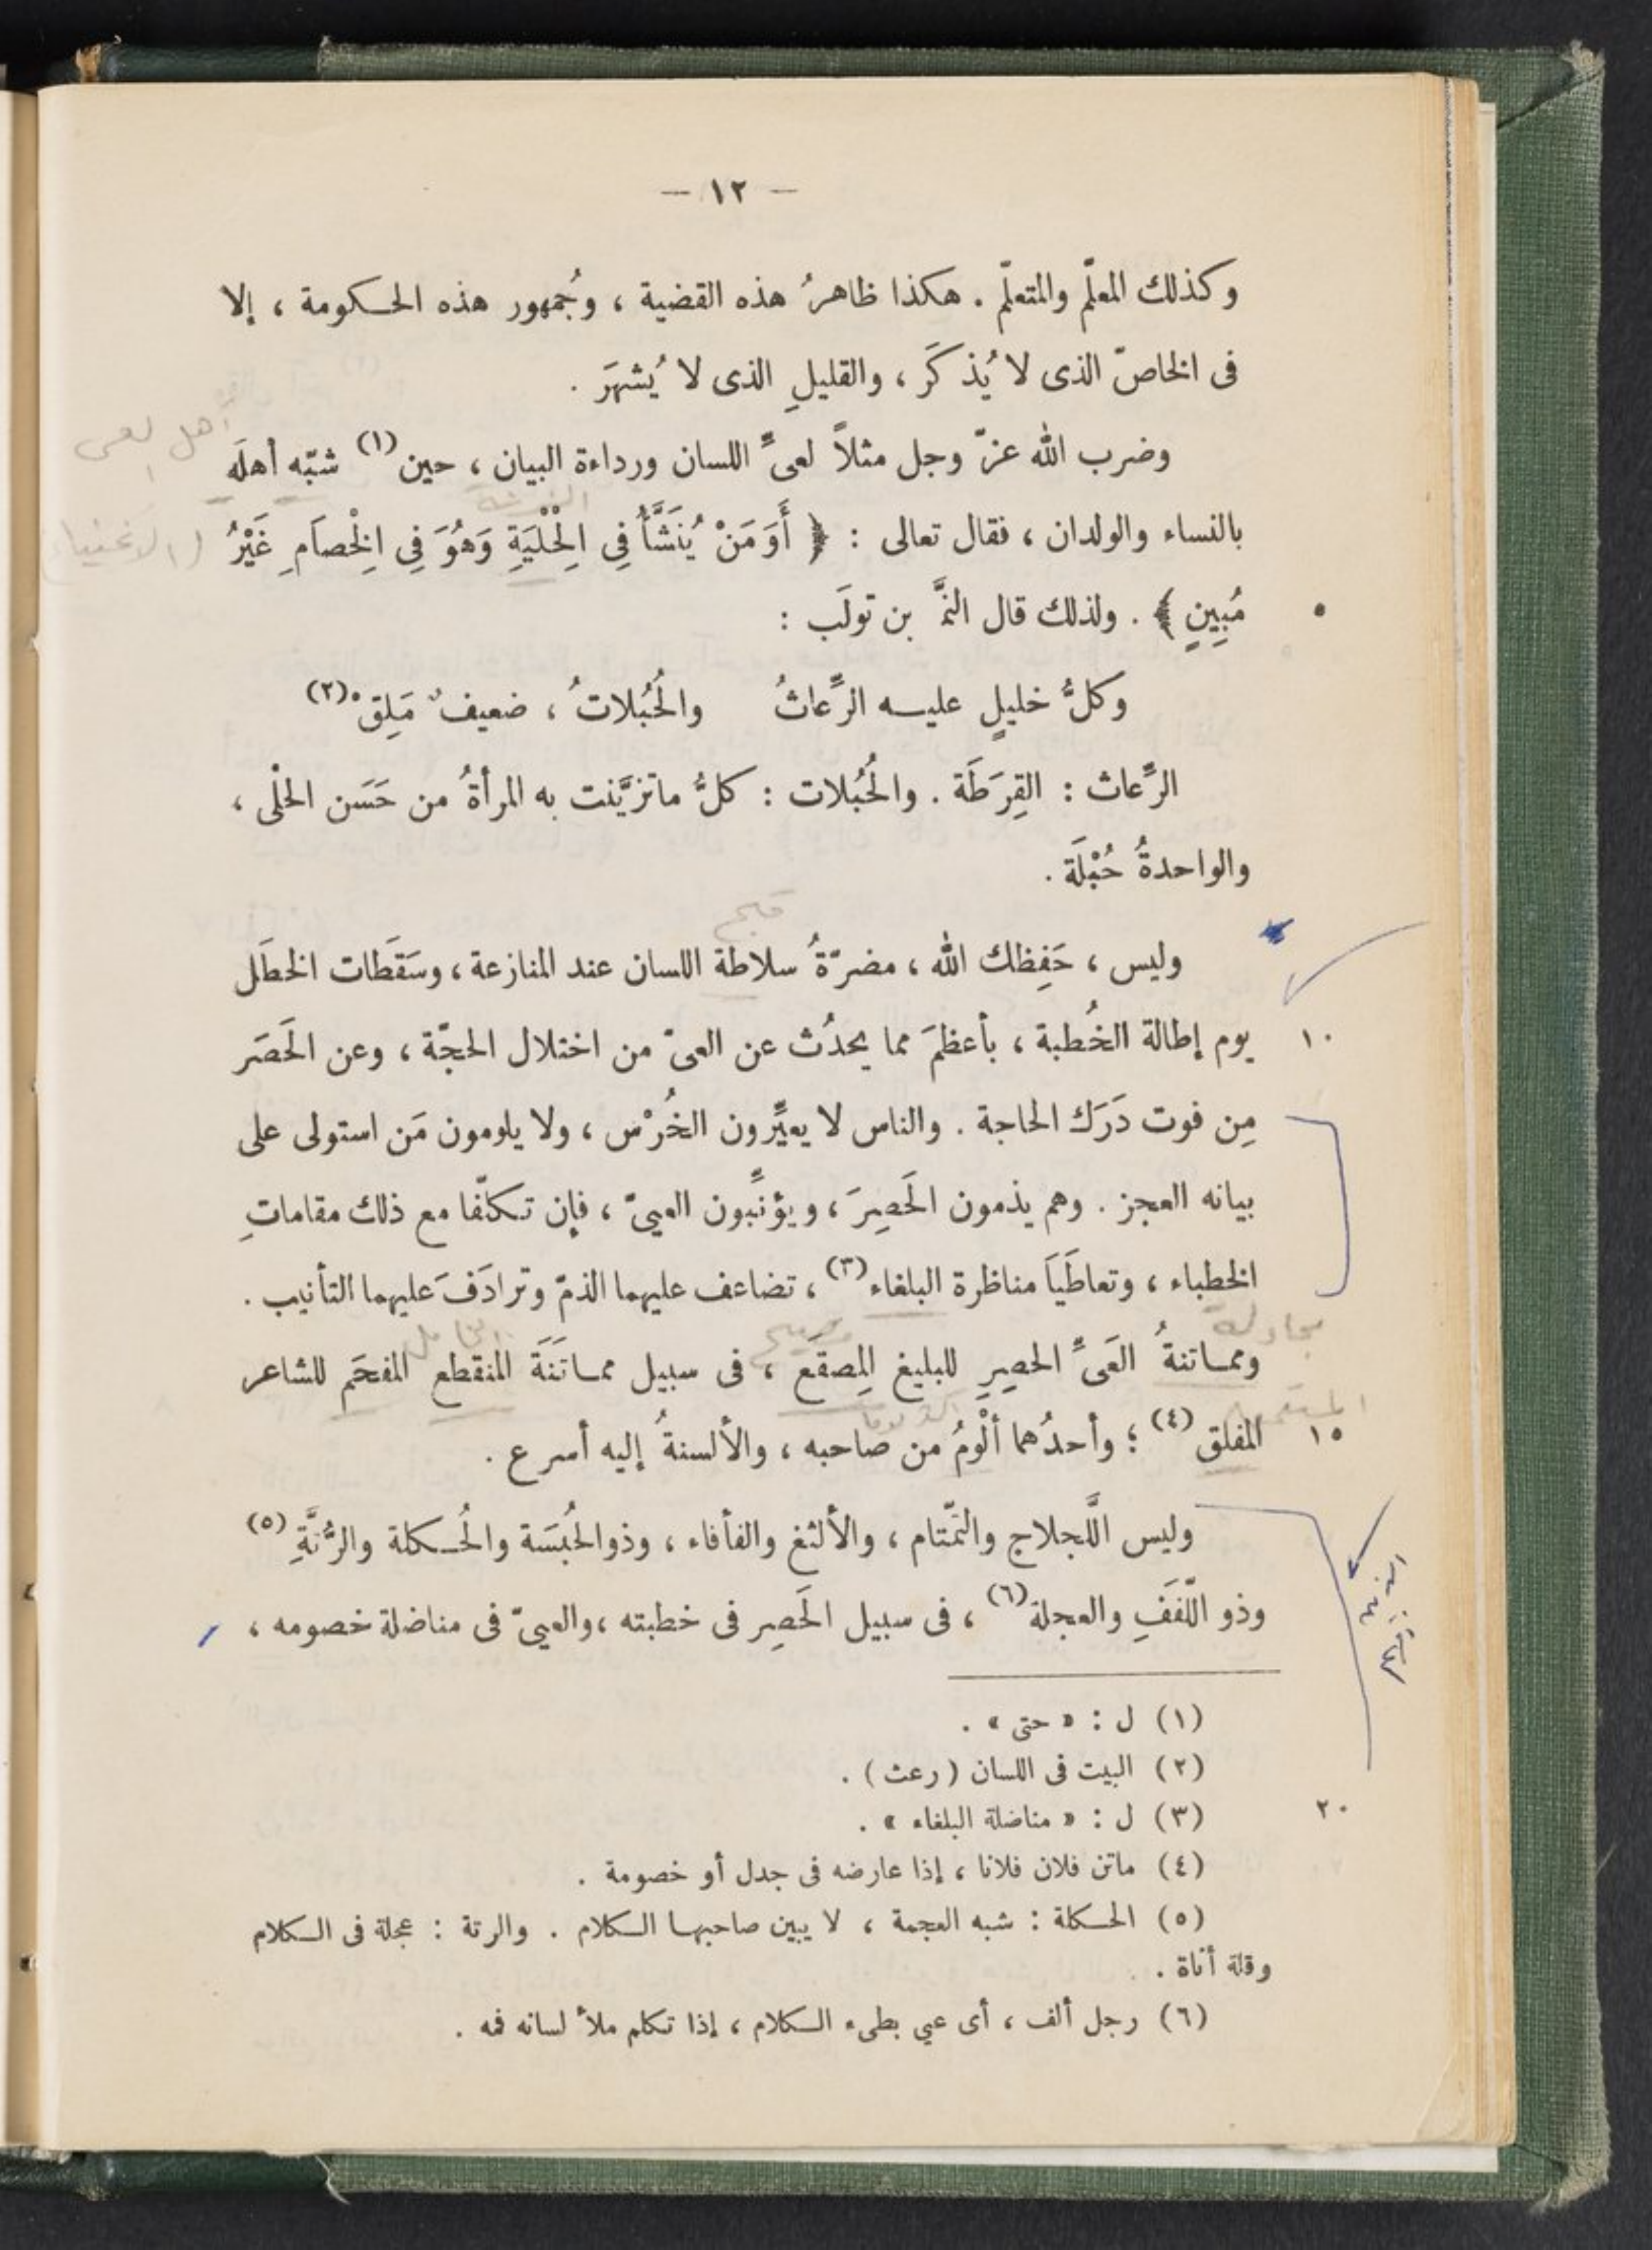 — ١٢ —
وكذلك المعلّم والمتعلّم . هكذا ظاهرُ هذه القضية ، وجُمهور هذه الحكومة ، إلا
فى الخاصّ الذى لا يُذكَر ، والقليلِ الذى لا يُشهَر .
أهل العى
وضرب الله عزّ وجل مثلاً لعىِّ اللسان ورداءة البيان ، حين (١) شبّه أهلَه
بالنساء والولدان ، فقال تعالى : ﴿ أَوَمَنْ يُنَشَّأُ فِي الْحِلْيَةِ وَهُوَ فِي الْخِصَامِ غَيْرُ
مُبِينٍ ﴾ . ولذلك قال النَّمـ بن تولَب :
٥
وكلُّ خليلٍ عليه الرِّعاثُ والحُبُلاتُ ، ضعيفٌ مَلِقْ (٢)
الرِّعاث : القِرَطَة . والحُبُلات : كلُّ ماتزيَّنت به المرأةُ من حَسَن الحلْى ،
والواحدةُ حُبْلَة .
قبح
وليس ، حَفِظك الله ، مضرّةُ سلاطة اللسان عند المنازعة ، وسَقَطات الخطَل
يوم إطالة الخُطبة ، بأعظمَ مما يحدُث عن العىّ من اختلال الحجّة ، وعن الحَصَر
١٠
مِن فوت دَرَك الحاجة . والناس لا يعيِّرون الخُرْس ، ولا يلومون مَن استولى على
بيانه العجز . وهم يذمون الحَصِرَ ، ويؤنِّبون العيىّ ، فإن تكلّفا مع ذلك مقاماتِ
الخطباء ، وتعاطَيَا مناظرة البلغاء (٣) ، تضاعف عليهما الذمّ وترادَفَ عليهما التأنيب .
مجادلة
فصيح
ومماتنةُ العَىِّ الحصِرِ للبليغ المِصقَع ، فى سبيل مماتَنَةَ المنقطع المفحَم للشاعر
المفلق (٤) ؛ وأحدُهما ألْوَمُ من صاحبه ، والألسنةُ إليه أسرع .
١٥
وليس اللَّجلاج والتَّمتام ، والألثغ والفأفاء ، وذو الحُبْسَة والحُكلة والرُّتَّةِ (٥)
وذو اللّفَفِ والعجلة (٦) ، فى سبيل الحَصِر فى خطبته ، والعيىّ فى مناضلة خصومه ،
(١) ل : « حتى » .
(٢) البيت فى اللسان ( رعث ) .
(٣) ل : « مناضلة البلغاء » .
٢٠
(٤) ماتن فلان فلانا ، إذا عارضه فى جدل أو خصومة .
(٥) الحكلة : شبه العجمة ، لا يبين صاحبها الكلام . والرتة : عجلة فى الكلام
وقلة أناة .
(٦) رجل ألف ، أى عيي بطىء الكلام ، إذا تكلم ملأ لسانه فمه .